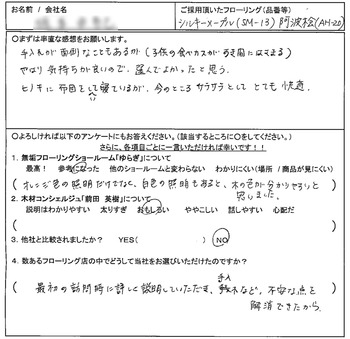 お名前 / 会社名
ご採用頂いたフローリング(品番等)
シルキーメープル(SM-13) 阿波桧(AH-20)
〇まずは率直な感想をお願いします。
手入れが面倒なこともあるが(子供の食べカスがすき間にはさまる)
やはり気持ちが良いので、選んでよかったと思う。
ヒノキに布団をしいて寝ているが、今のところサラサラとしてとても快適。
〇よろしければ以下のアンケートにもお答えください。(該当するところに〇をしてください。)
さらに、各項目ごとに一言いただければ幸いです!!
1. 無垢フローリングショールーム「ゆらぎ」について
最高! 参考になった 他のショールームと変わらない わかりにくい(場所 / 商品が見にくい)
(オレンジ色の照明だけでなく、白色の照明もあると、木の色が分かりやすいと思いました。)
2. 木材コンシェルジュ「前田 英樹」について
説明はわかりやすい 太りすぎ おもしろい ややこしい 話しやすい 心配だ
( )
3. 他社と比較されましたか? YES( ) NO
4. 数あるフローリング店の中でどうして当社をお選びいただけたのですか?
(最初の訪問時に詳しく説明していただき、手入れなど、不安な点を
解消できたから。)